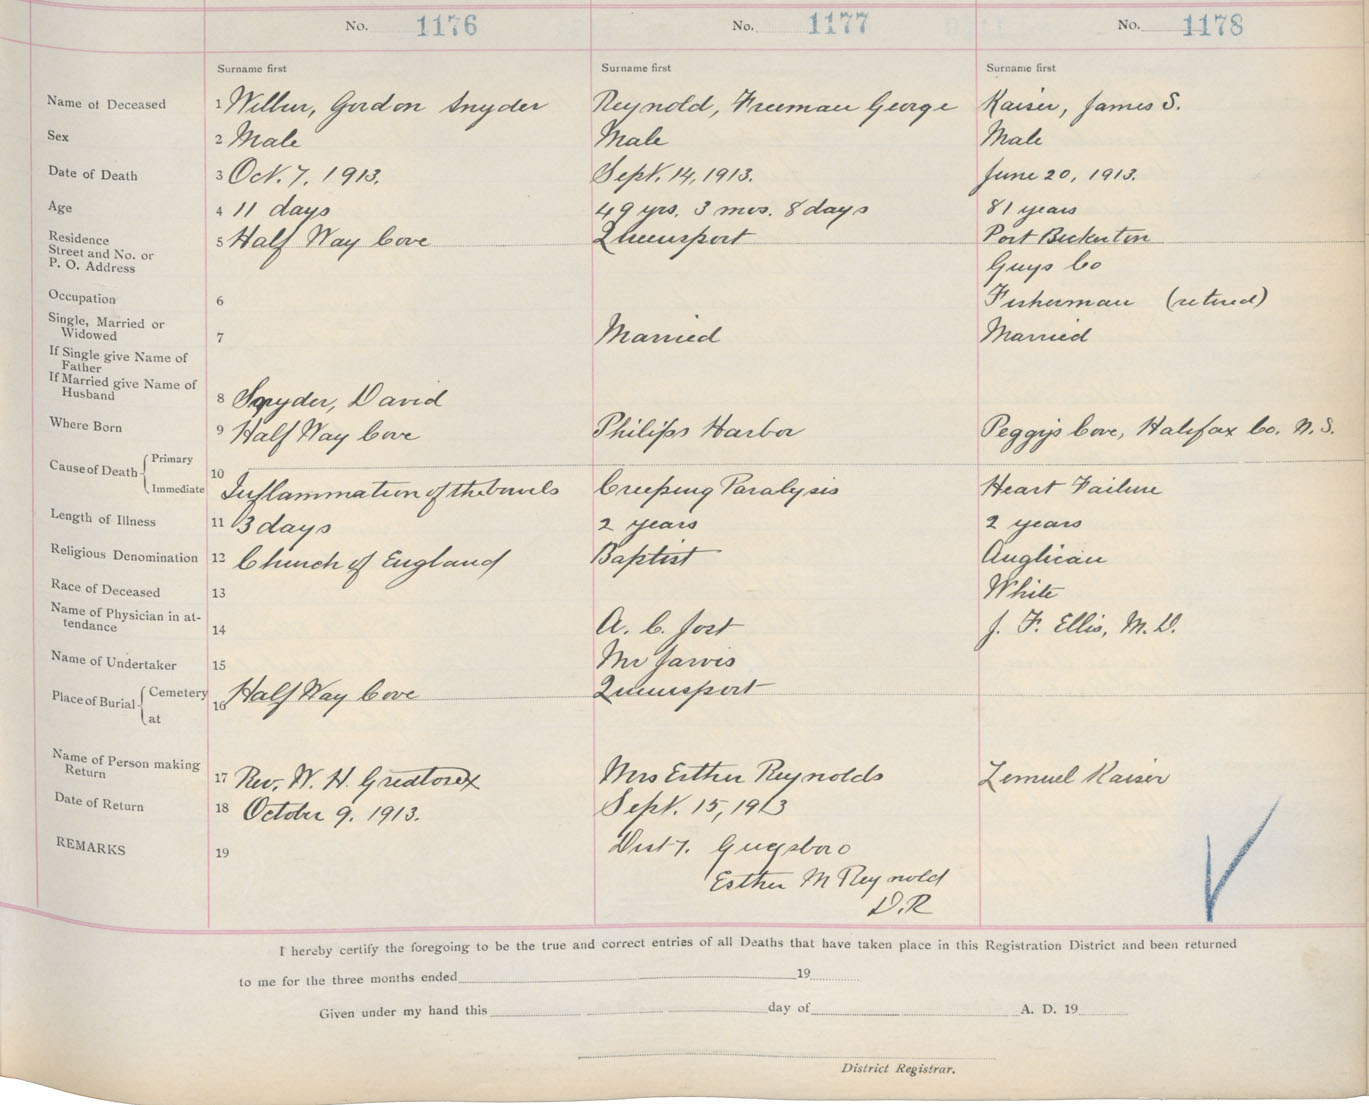 No. 1176 No. 1177 No. 1178
Surname first Surname first Surname first
Name of Deceased 1 Wilbur, Gordon Snyder Reynold, Freeman George Kaiser, James S.
Sex 2 Male Male Male
Date of Death 3 Oct. 7, 1913. Sept. 14, 1913. June 20, 1913.
Age 4 11 days 49 yrs. 3 mos. 8 days 81 years
Residence
Street and No. or
P. O. Address
5 Half Way Cove Queensport Port Bickerton
Guys Co
Occupation 6 Fisherman (retired)
Single, Married or
Widowed 7 Married Married
If Single give Name of
Father
If Married give Name of
Husband
8 Snyder, David
Where Born 9 Half Way Cove Philips Harbor Peggys Cove, Halifax Co. N.S.
Cause of Death Primary
Immediate
10 Inflammation of the bowels Creeping Paralysis Heart Failure
Length of Illness 11 3 days 2 years 2 years
Religious Denomination 12 Church of England Baptist Anglican
Race of Deceased 13 White
Name of Physician in at-
tendance 14 A. C. Jost J. F. Ellis, M.D.
Name of Undertaker 15 Mr Jarvis
Place of Burial Cemetery
at
16 Half Way Cove Queensport
Name of Person making
Return 17 Rev. W. H. Greatorex Mrs Esther Reynolds Lemuel Kaiser
Date of Return 18 October 9, 1913. Sept. 15, 1913
REMARKS 19 Dist 7. Guysboro
Esther M Reynold
D.R
I hereby certify the foregoing to be the true and correct entries of all Deaths that have taken place in this Registration District and been returned
to me for the three months ended 19
Given under my hand this day of A. D. 19
District Registrar.